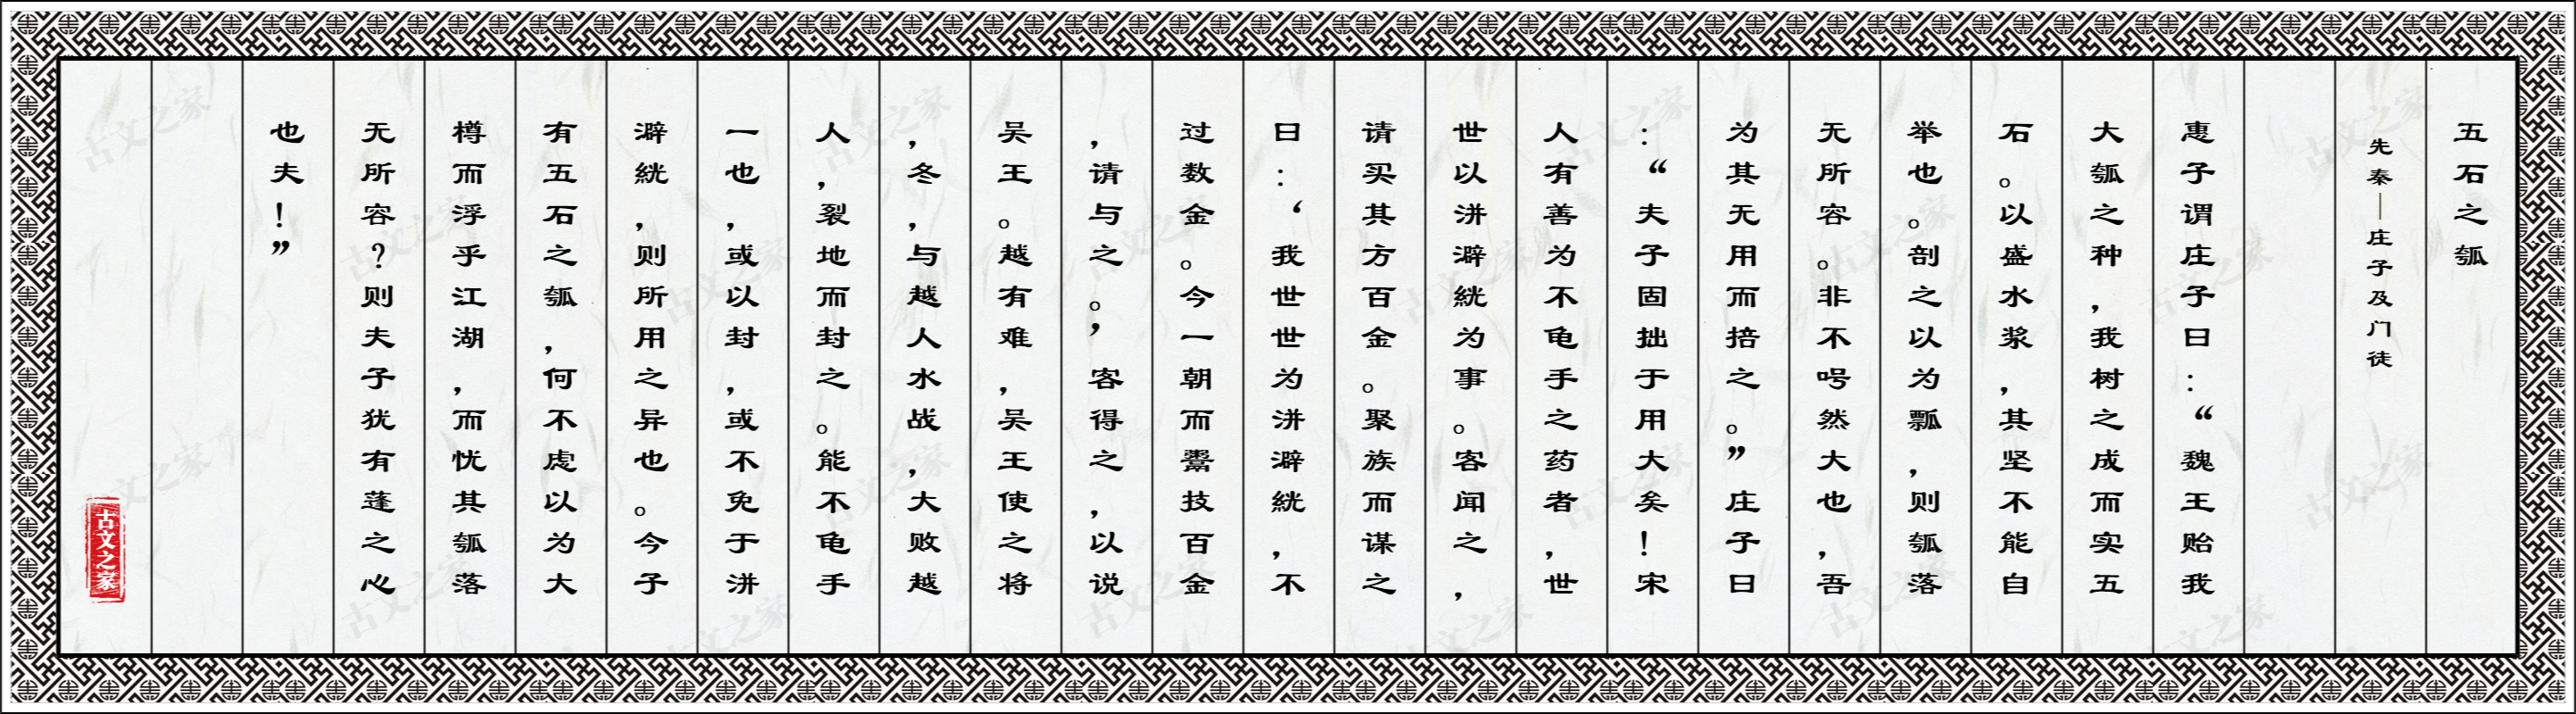 五石之瓠
先秦—庄子及门徒
惠子谓庄子曰：“魏王贻我
大瓠之种，我树之成而实五
石。以盛水浆，其坚不能自
举也。剖之以为瓢，则瓠落
无所容。非不呺然大也，吾
为其无用而掊之。”庄子曰
：“夫子固拙于用大矣！宋
人有善为不龟手之药者，世
世以洴澼絖为事。客闻之，
请买其方百金。聚族而谋之
曰：‘我世世为洴澼絖，不
过数金。今一朝而鬻技百金
，请与之。’客得之，以说
吴王。越有难，吴王使之将
，冬，与越人水战，大败越
人，裂地而封之。能不龟手
一也，或以封，或不免于洴
澼絖，则所用之异也。今子
有五石之瓠，何不虑以为大
樽而浮乎江湖，而忧其瓠落
无所容？则夫子犹有蓬之心
也夫！”
古文之家